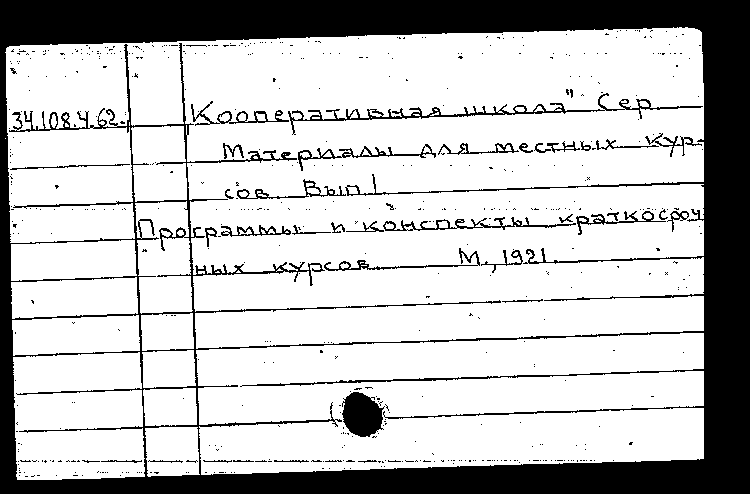 34.108.4.62. Кооперативная школа" Сер.
Материалы для местных кур-
сов. Вып. 1.
Программы и конспекты краткосроч-
ных курсов. М., 1921.